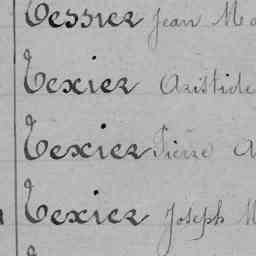 Tessier Jean
Texier Aristide
Texier Pierre
Texier Joseph